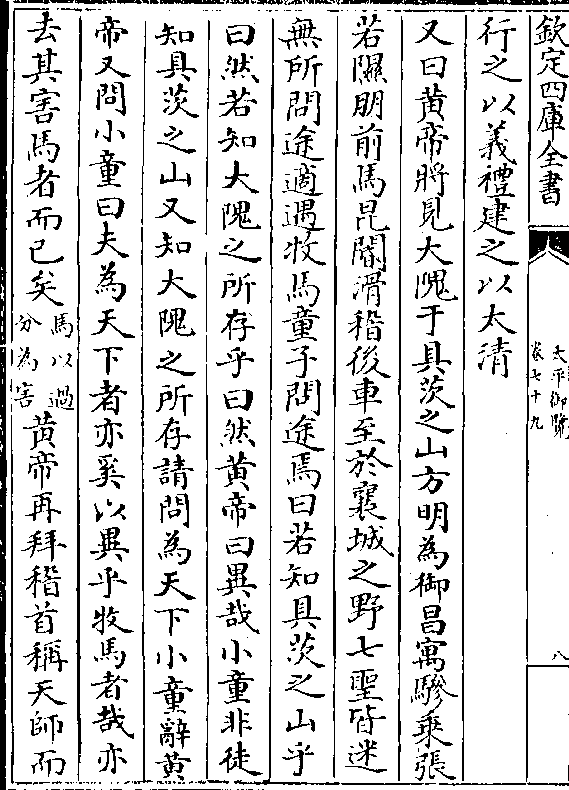 欽定四庫全書
太平御覽
卷七十九
八
行之以義禮建之以太清
又曰黄帝將見大隗于具茨之山方明為御昌㝢驂乗張
若隰朋前馬昆閽滑稽後車至於襄城之野七聖皆迷
無所問途適遇牧馬童子問途焉曰若知具茨之山乎
曰然若知大隗之所存乎曰然黄帝曰異哉小童非徒
知具茨之山又知大隗之所存請問為天下小童辭黄
帝又問小童曰夫為天下者亦奚以異乎牧馬者哉亦
去其害馬者而已矣
馬以過
分為害
黄帝再拜稽首稱天師而